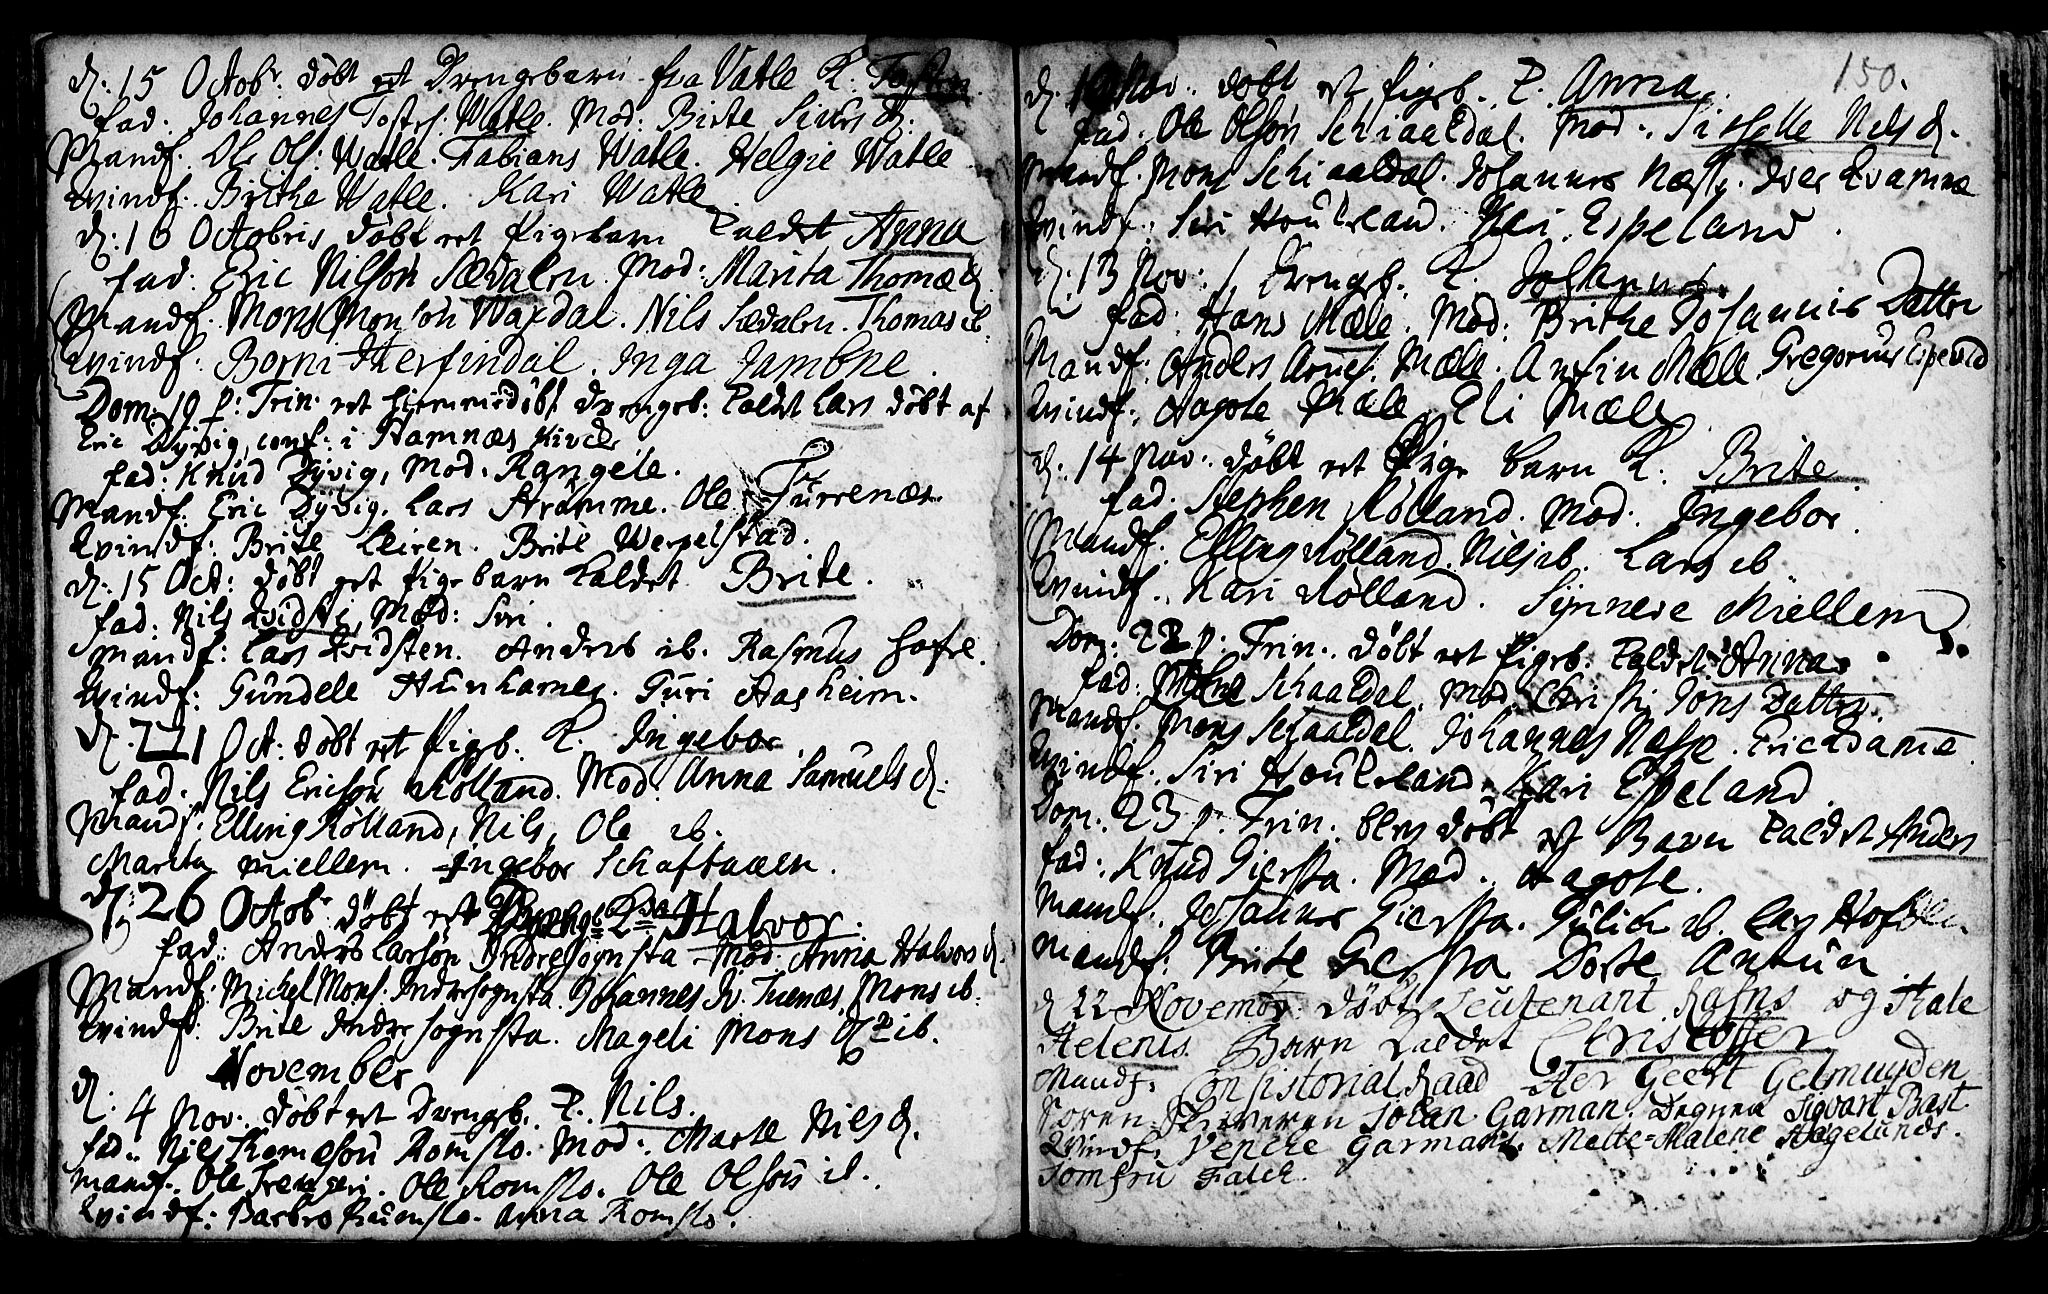 d: 15 Octobr: döbt est Drengebarn fra Vatle K. Tosten
fad: Johannes Tostens: Watle. Mod: Birte Siurs D:
Mandf. Ole Ols: Watle. Fabians Watle. Helgie Watle
Qvindf. Brithe Watle. Kari Watle
d: 16 Octobris döbt et Pigebarn kaldet Anna
fad: Eric Nilson Sædalen. Mod: Marita Thomæ D.
Mandf. Mons Monsön Waxdal. Nils Sædalen. Thomas ib.
Qvindf: Borni Herfindal. Inga Jambne.
Dom: 19 p: Trin: et hiemmedöbt Drengeb: kaldet Lars döbt af
Eric Dyvig, conf: i Stamnæs Kirche
fad: Knud Dyvig, Mod: Rangele.
Mandf. Eric Dyvig. Lars Stramme. Ole Furrenæs
Qvindf: Brite Leiren. Brite Werpelstad.
d: 15 Oct: döbt et Pigebarn kaldet Brite.
fad: Nils Qvidste, Mod: Siri.
Mandf: Lars Qvidsten. Anders ib. Rasmus
Qvindf: Gundele Hunhamer. Guri Aasheim.
d. 221 Oct: döbt et Pigeb: K. Ingebor
fad. Nils Ericson Rölland. Mod. Anna Samuels d:
Mandf: Elling Rölland, Nils, Ole ib.
Marita Miellem. Ingebor Schaftaaen.
d: 26 Octobr: döbt et Drengb. Halvor.
fad: Anders Larsön Indresognsta Mod: Anna Halvors d.
Mandf. Michel Mons. Indresognsta. Johannes Furenæs, Mons ib.
Qvindf: Brite Indresognsta. Mageli Mons D: ib.
November
d: 4 Nov: döbt et Drengeb. K. Nils.
fad: Nils Romslo. Mod. Marte Nils d.
Mandf. Ole Trengeri. Ole Romslo. Ole Olsön ib.
Qvindf: Barbro Romslo. Anna Romslo.
150.
d. Nov. döbt et Pigeb. K. Anna
fad. Ole Olsön Schiaaldal. Mod: Nils d.
Mandf. Mons Schiaaldal. Johannes Næsse.
Qvindf. Siri Houkeland. Kari Espeland
d: 13 Nov: 1 Drengb. K. Johannes.
fad. Hans Mæle. Mod: Brithe Johannis Datter
Mandf. Anders Arnes. Mæle. Anfin Mæle. Gregorius
Qvindf. Aagote Mæle, Eli Mæle
d. 14 Nov: döbt et Pige barn K. Brite
fad. Stephen Rölland. Mod. Ingebor.
Mandf. Elling Rölland. Nils ib. Lars ib
Qvindf. Kari Rölland. Synneve Miellem
Dom: 22 p: Trin. döbt et Pigeb. kaldet Anna.
fad: Schaaldal. Mod. Christi Jons Datter.
Mandf. Mons Schaaldal. Johannes Nesse. Eric
Qvindf. Siri Houkeland. Kari Espeland
Dom: 23 p. Trin: blev döbt et Barn kaldet Anders
fad: Knud Giersta. Mod. Aagote.
Mandf: Johannes Giersta. Gulich ib. Lars
Mandf: Brite Giersta Dorte Antun
d 22 Novembr: döbt Leutenant Rafns og
Helenes Barn kaldet Christoffer
Mandf. Consistorial Raad Her Geert Gelmuyden
Soren Skriveren Johan Garman. Degnen Sigvart Bast
Qvindf. Venche Garmans. Mette Malene Hagelunds.
Jomfru Falch.